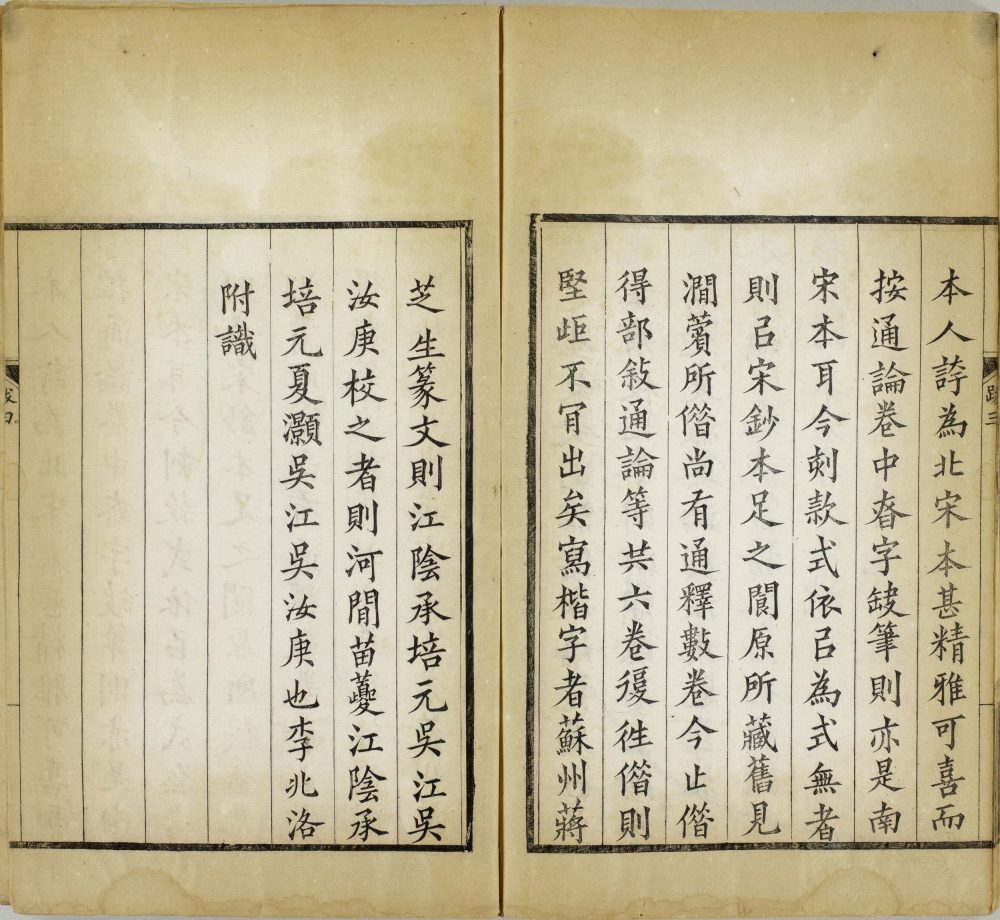 本人誇為北宋本甚精雅可喜而
按通論卷中昚字缺筆則亦是南
宋本耳今刻款式依㠯為式無者
則㠯宋鈔本足之閬原所藏舊見
澗薲所僭尚有通釋數卷今止僭
得部敘通論等共六卷復徃僭則
堅歫不肎出矣寫楷字者蘇州蔣
跋三
芝生篆文則江陰承培元吳江吳
汝庚校之者則河間苗夔江陰承
培元夏灝吳江吳汝庚也李兆洛
附識
跋四